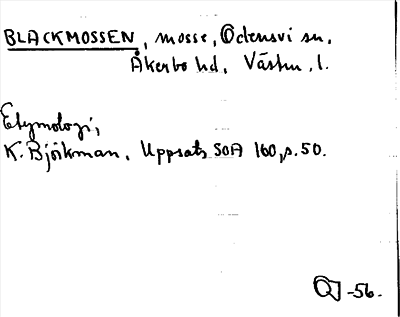 BLACKMOSSEN, mosse, Odensvi sn,
Åkerbo hd, Västm. l.
Etymologi,
K. Björkman, Uppsats SOA 160, s. 50.
-56.